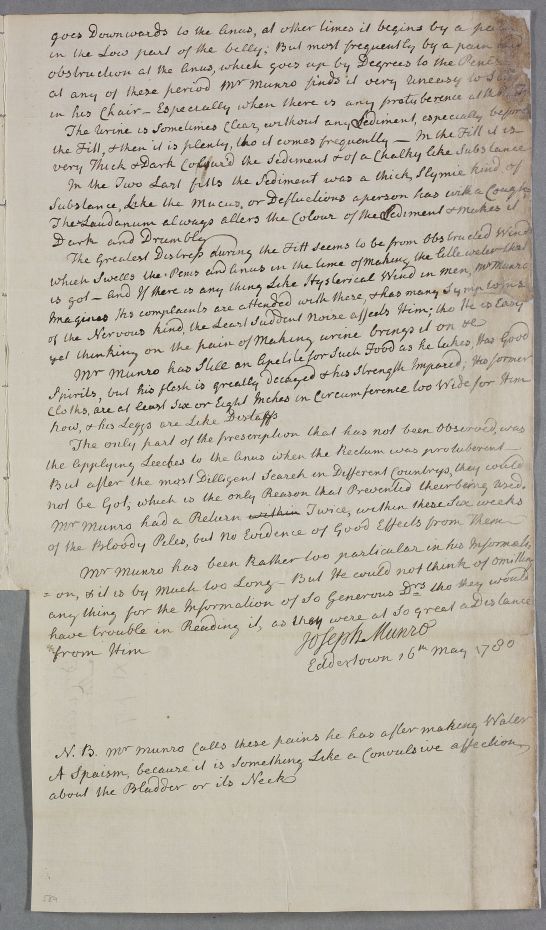 goes Downwards to the Anus, at other times it begins by a pain
in the Low part of the belly; But most frequently by a pain and
obstruction at the Anus, which goes up by Degrees to the Penis
at any of these period Mr Munro finds it very Uneasy to Sit
in his Chair – Especially when there is any protuberence at the
The Urine is Sometimes Clear, without any Sediment, especially before
the Fitt, & then it is plenty, tho it comes frequently – In the Fitt it is
very Thick & Dark Colour'd the Sediment & of a Chalky like Substance
In the Two Last fitts the Sediment was a thick Slymie kind of
Substance, Like the Mucus, or Defluctions a person has with a Cough
The Laudanum always alters the Colour of the Sediment & makes it
Dark and Drumbly
The Greatest Distress during the Fitt seems to be from Obstructed Wind
which Swells the Penis and Anus in the time of making the little water that
is got – and If there is any thing Like Hysterical Wind in men, Mr Munro
Imagines His complaints are attended with these, & has many Symptoms
of the Nervous kind, the Least Suddent Noise affects Him; tho He is Easy
yet thinking on the pain of Making urine brings it on &c
Mr Munro has Still an Apetite for Such Food as he takes, Has Good
Spirits, but his flesh is greatly decayed & his Strength Impared; His former
Cloths, are at least Six or Eight Inches in Circumference too Wide for Him
now, & his Leggs are Like Distaffs
The only part of the prescription that has not been Observed, was
the applying Leeches to the Anus when the Rectum was protuberent –
But after the most Dilligent Search in Different Countrys, they could
not be Got, which is the only Reason that Prevented their being Used.
Mr Munro had a Return within Twice, within these Six weeks
of the Bloody Piles, but no Evidence of Good Effects from Them
Mr Munro has been Rather too particular in his Informati
= on, & it is by much too Long – But He could not think of omitting
any thing for the Information of So Generous Drs tho they would
have trouble in Reading it, as they were at So great a Distance
from Him
Joseph Munro
Eddertown 16th May 1780
N. B. Mr Munro Calls these pains he has after making Water
A Spaism, because it is Something Like a Convulsive affection
about the Bladder or its Neck